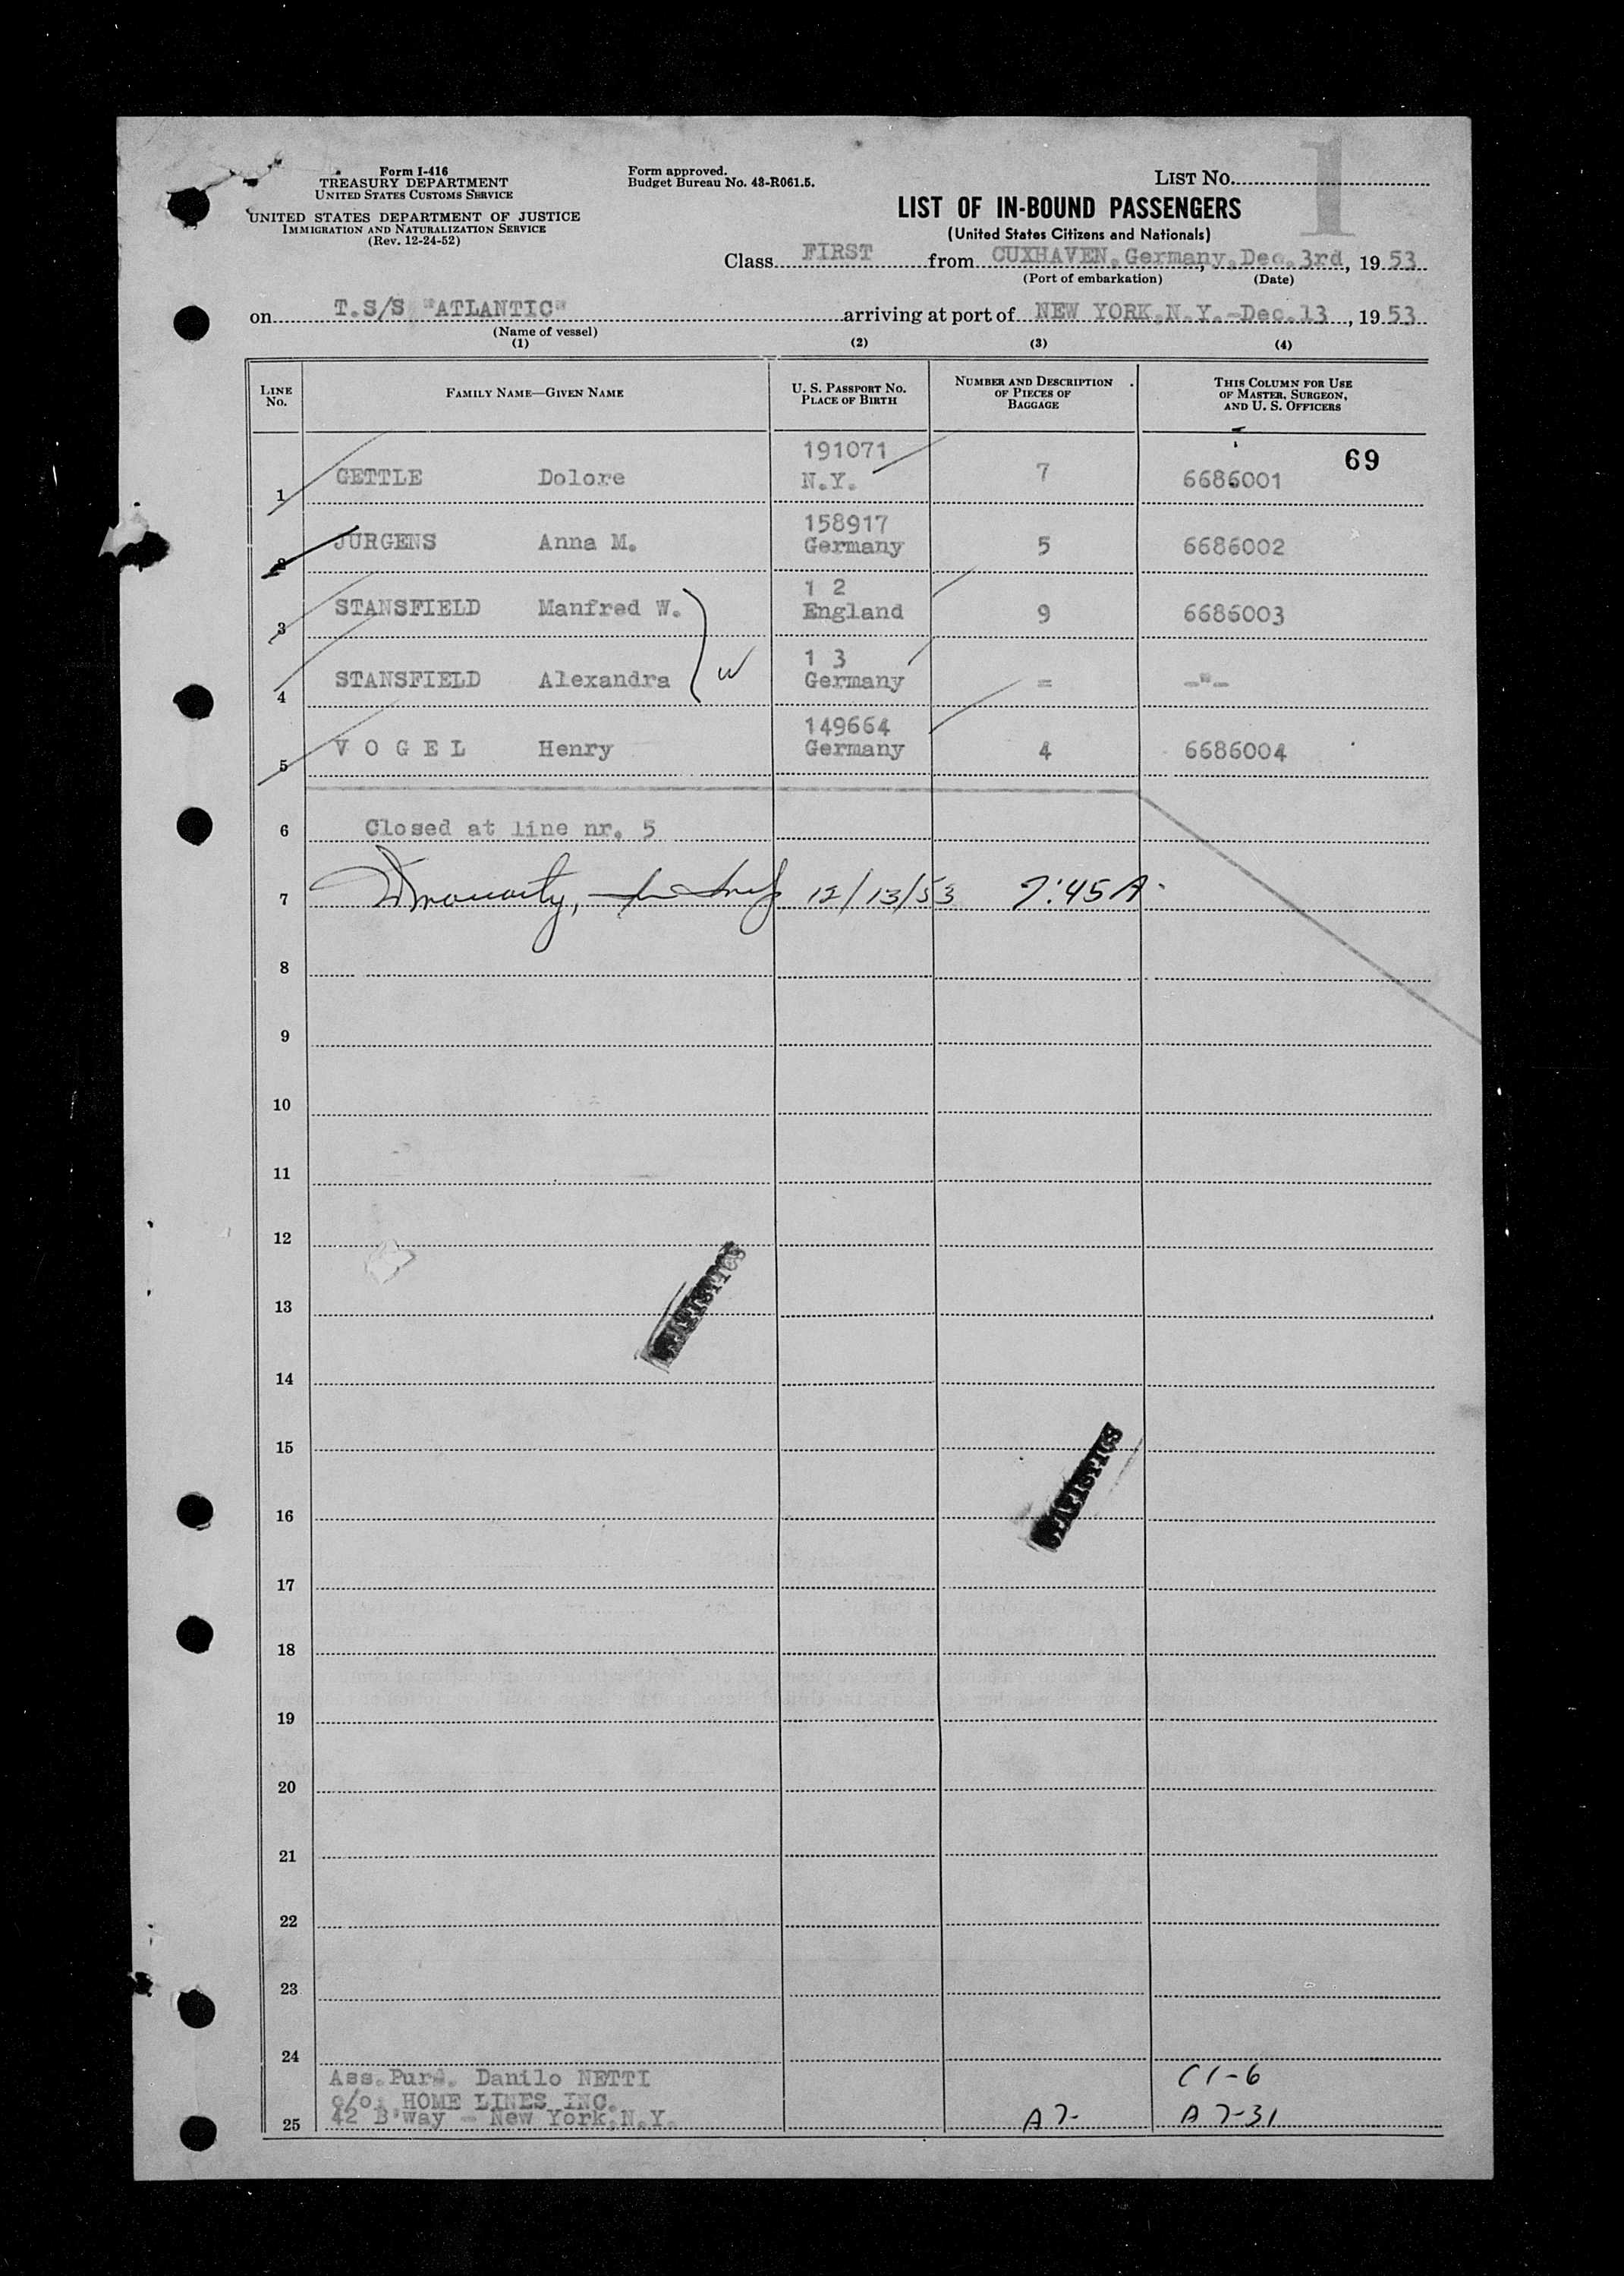 Form I-416
TREASURY DEPARTMENT
UNITED STATES CUSTOMS SERVICE
UNITED STATES DEPARTMENT OF JUSTICE
IMMIGRATION AND NATURALIZATION SERVICE
(Rev. 12-24-52)
Form approved.
Budget Bureau No. 43-R061.5.
LIST NO.
1
LIST OF IN-BOUND PASSENGERS
(United States Citizens and Nationals)
Class FIRST from CUXHAVEN, Germany, Dec. 3rd, 19 53
(Port of embarkation) (Date)
on T.S/S "ATLANTIC" arriving at port of NEW YORK, N.Y. - Dec. 13, 19 53
(Name of vessel)
(1) (2) (3) (4)
LINE NO. FAMILY NAME—GIVEN NAME U. S. PASSPORT NO. PLACE OF BIRTH NUMBER AND DESCRIPTION OF PIECES OF BAGGAGE THIS COLUMN FOR USE OF MASTER, SURGEON, AND U. S. OFFICERS
69
1 GETTLE Dolore 191071 N.Y. 7 6686001
2 JURGENS Anna M. 158917 Germany 5 6686002
3 STANSFIELD Manfred W. 1 2 England 9 6686003
4 STANSFIELD Alexandra W 1 3 Germany = -"-
5 V O G E L Henry 149664 Germany 4 6686004
6 Closed at line nr. 5
7 12/13/53 7:45 A.
8
9
10
11
12
13
14
15
16
17
18
19
20
21
22
23
24
STATISTICS
STATISTICS
Ass.Purs. Danilo NETTI
c/o: HOME LINES INC.
42 B'way - New York, N.Y.
25
A7-
C1-6
A7-31